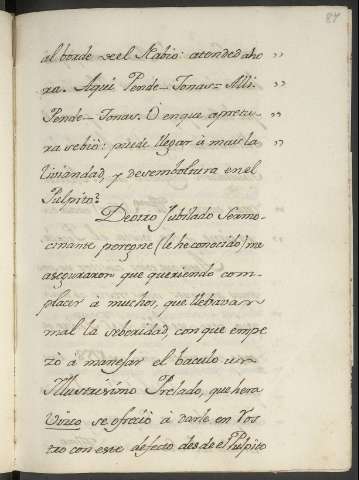 87
al borde de el Rabio: atended aho „
ra. Aqui Pende-Tonas = Alli „
Pende-Tonas. O en que apretu „
ra se bió: puede llegar à mas la „
liviandad, y desemboltura en el
Pulpito?
De otro Jubilado Sermo-
cinante porçone (le he conocido) me
aseguraron que queriendo com-
placer à muchos, que llebavan
mal la seberidad, con que empe
zò à manejar el baculo un
Illustrisimo Prelado, que hera
Vizco se ofreciò à darle en ros
tro con este defecto desde el Pulpito